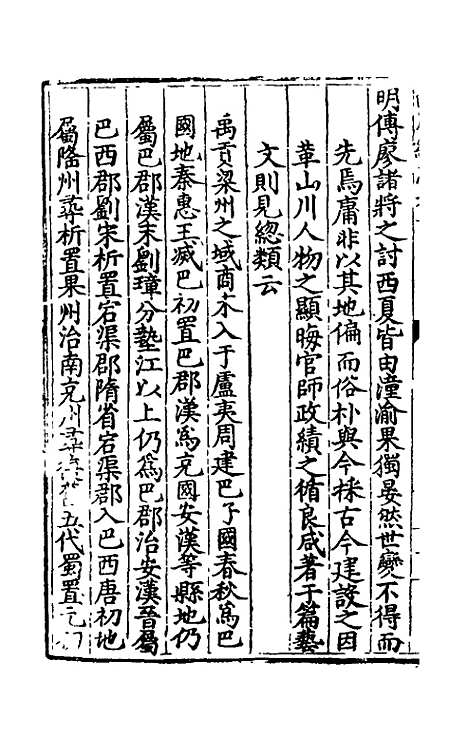 明傅廖諸將之討西夏皆由潼渝果獨晏然世變不得而
先焉庸非以其地偏而俗朴與今採古今建設之因
革山川人物之顯晦官師政績之循良咸著于篇藝
文則見總類云
禹貢梁州之域商末入于盧夷周建巴子國春秋為巴
國地秦惠王滅巴初置巴郡漢為充國安漢等縣地仍
屬巴郡漢末劉璋分墊江以上仍為巴郡治安漢晉屬
巴西郡劉宋析置宕渠郡隋省宕渠郡入巴西唐初地
屬隆州尋析置果州治南充 五代蜀置